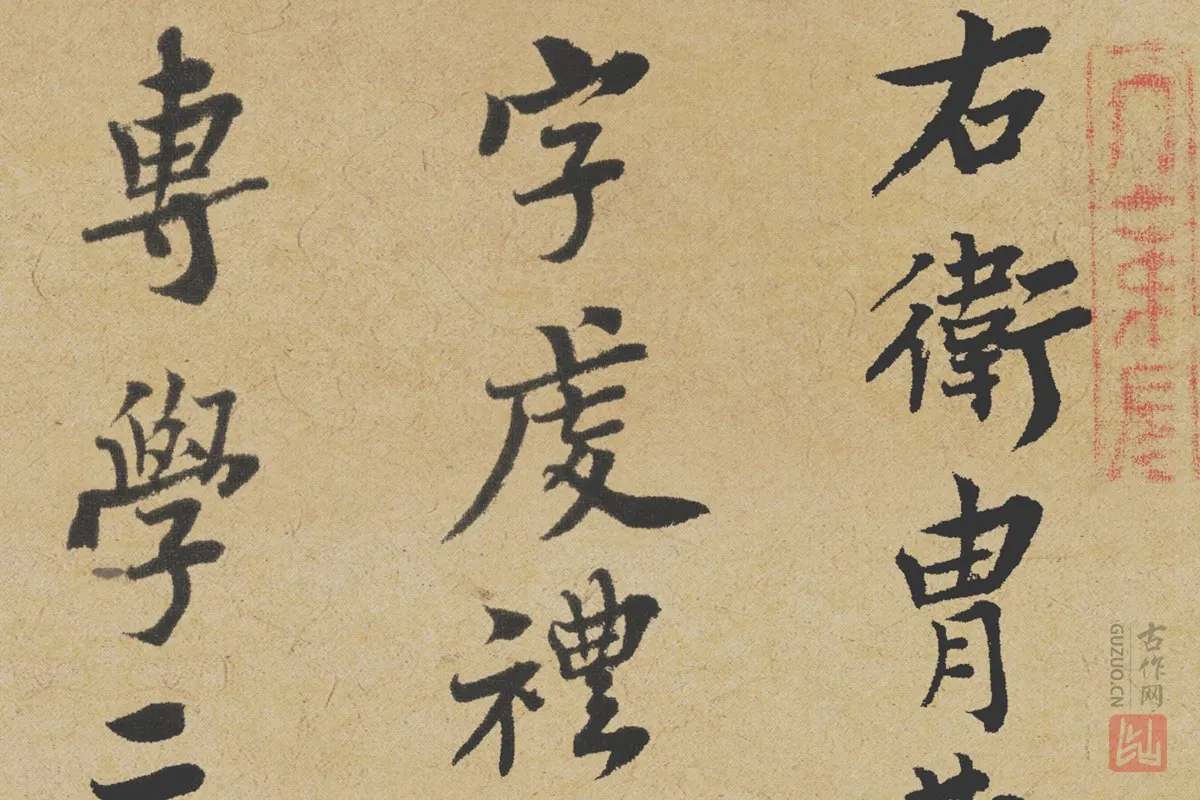 右衛冑
字虔禮
專學二
古作网
GUZUO.CN